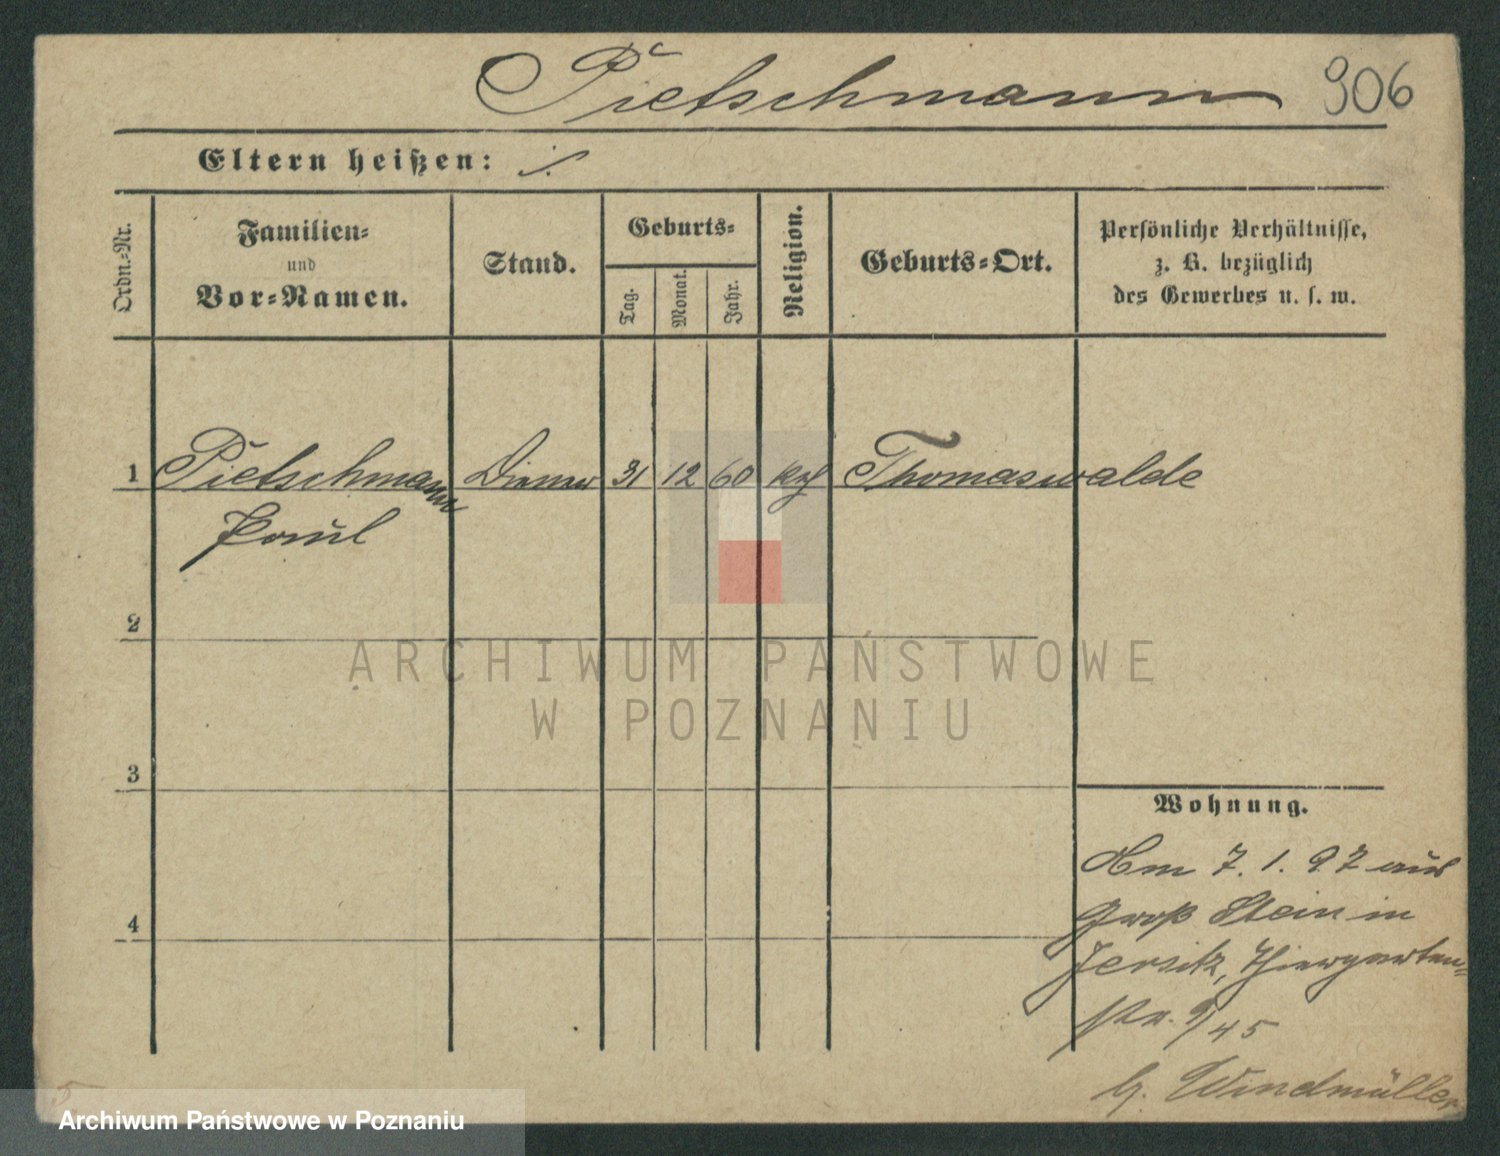 Pietschmann 906
Eltern heißen: ·/.
Ordn.-Nr.
Familien-
und
Vor-Namen.
Stand.
Geburts-
Tag.
Monat.
Jahr.
Religion.
Geburts-Ort.
Persönliche Verhältnisse,
z. B. bezüglich
des Gewerbes u. s. w.
1 Pietschmann Diener 31 12 60 Thomaswalde
Paul
2
3
4
Wohnung.
Am 7. 1. 97 aus
Groß Stein in
Jersitz, Thiergarten-
str. 9/45
b. Windmüller
5
ARCHIWUM PAŃSTWOWE
W POZNANIU
Archiwum Państwowe w Poznaniu